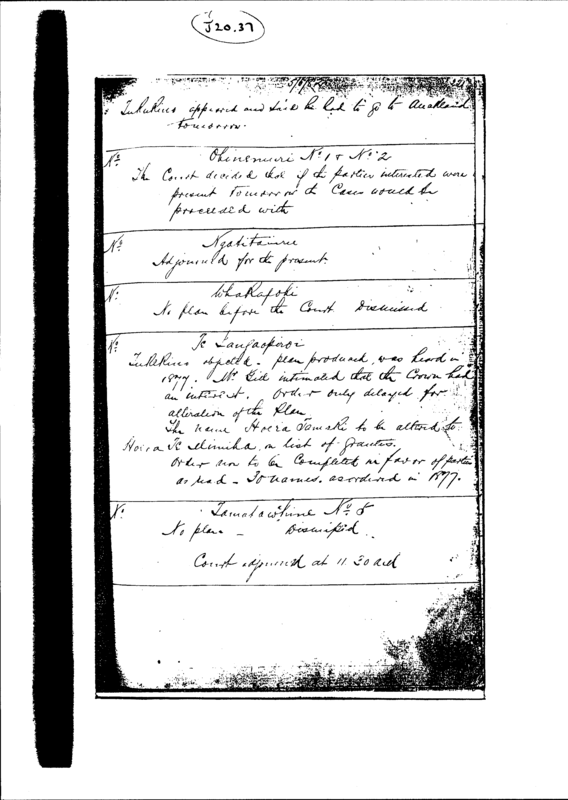 J20.37
Tukukino appeared and said he had to go to Auckland
tomorrow.
No Ohinemuri No 1 & No 2
The Court decided that if the parties interested were
present tomorrow the Cases would be
proceeded with
No
Adjourned for the present.
No
No plan before the Court Dismissed
No Te
objected. plan produced, was heard in
1877. Mr Gid intimated that the Crown had
an interest. Order only delayed for
alteration of the Plan
The name Hoera to be altered to
Hoera Te Mimiha in list of grantees.
Order now to be Completed in favor of parties
as read - names, as ordered in 1877.
No No 8
No plan - Dismissed.
Court adjourned at 11.30 a.m.